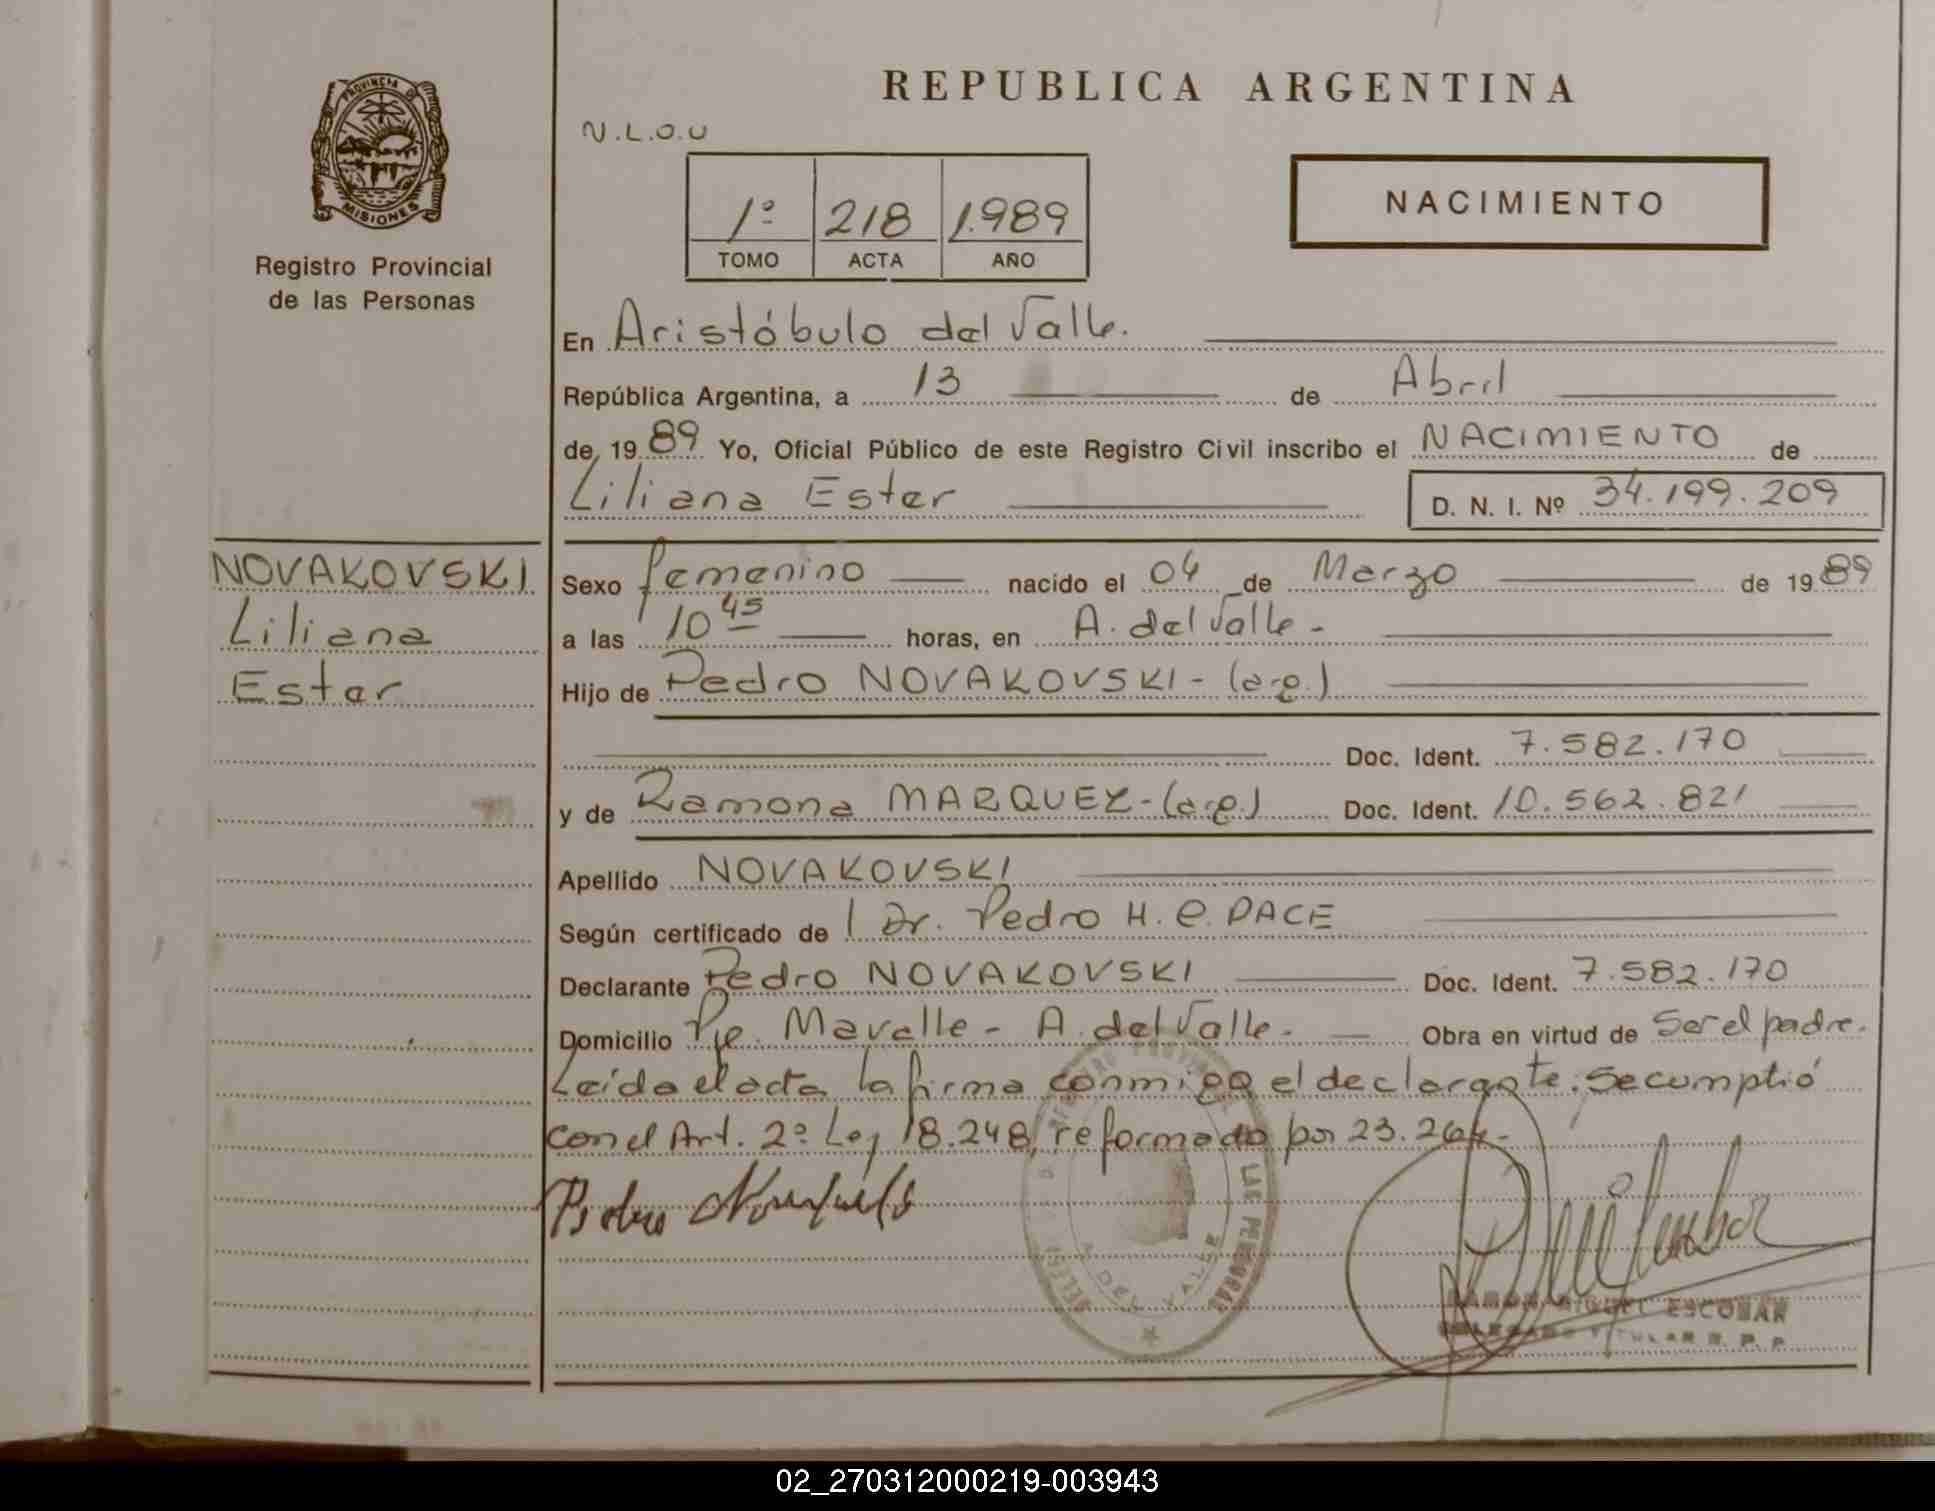 REPUBLICA ARGENTINA
PROVINCIA DE
MISIONES
Registro Provincial
de las Personas
N.L.O.U
NACIMIENTO
1º 218 1.989
TOMO ACTA AÑO
En Aristóbulo del Valle.
República Argentina, a 13 de Abril
de 19 89 Yo, Oficial Público de este Registro Civil inscribo el NACIMIENTO de
Liliana Ester D. N. I. Nº 34.199.209
NOVAKOVSKI
Liliana
Ester
Sexo femenino nacido el 04 de Marzo de 19 89
a las 10 45 horas, en A. del Valle -
Hijo de Pedro NOVAKOVSKI - (arg.)
Doc. Ident. 7.582.170
y de Ramona MARQUEZ - (arg.) Doc. Ident. 10.562.821
Apellido NOVAKOVSKI
Según certificado de Dr. Pedro H. C. PACE
Declarante Pedro NOVAKOVSKI Doc. Ident. 7.582.170
Domicilio Pje. Mavalle - A. del Valle - Obra en virtud de ser el padre.
Leída el acta, la firma conmigo el declarante. Se cumplió
con el Art. 2º Ley 18.248, reformado por 23.264.-
Pedro
A. DEL VALLE
LAS PERSONAS
RAMON MIGUEL ESCOBAR
DELEGADO TITULAR R. P. P.
02_270312000219-003943